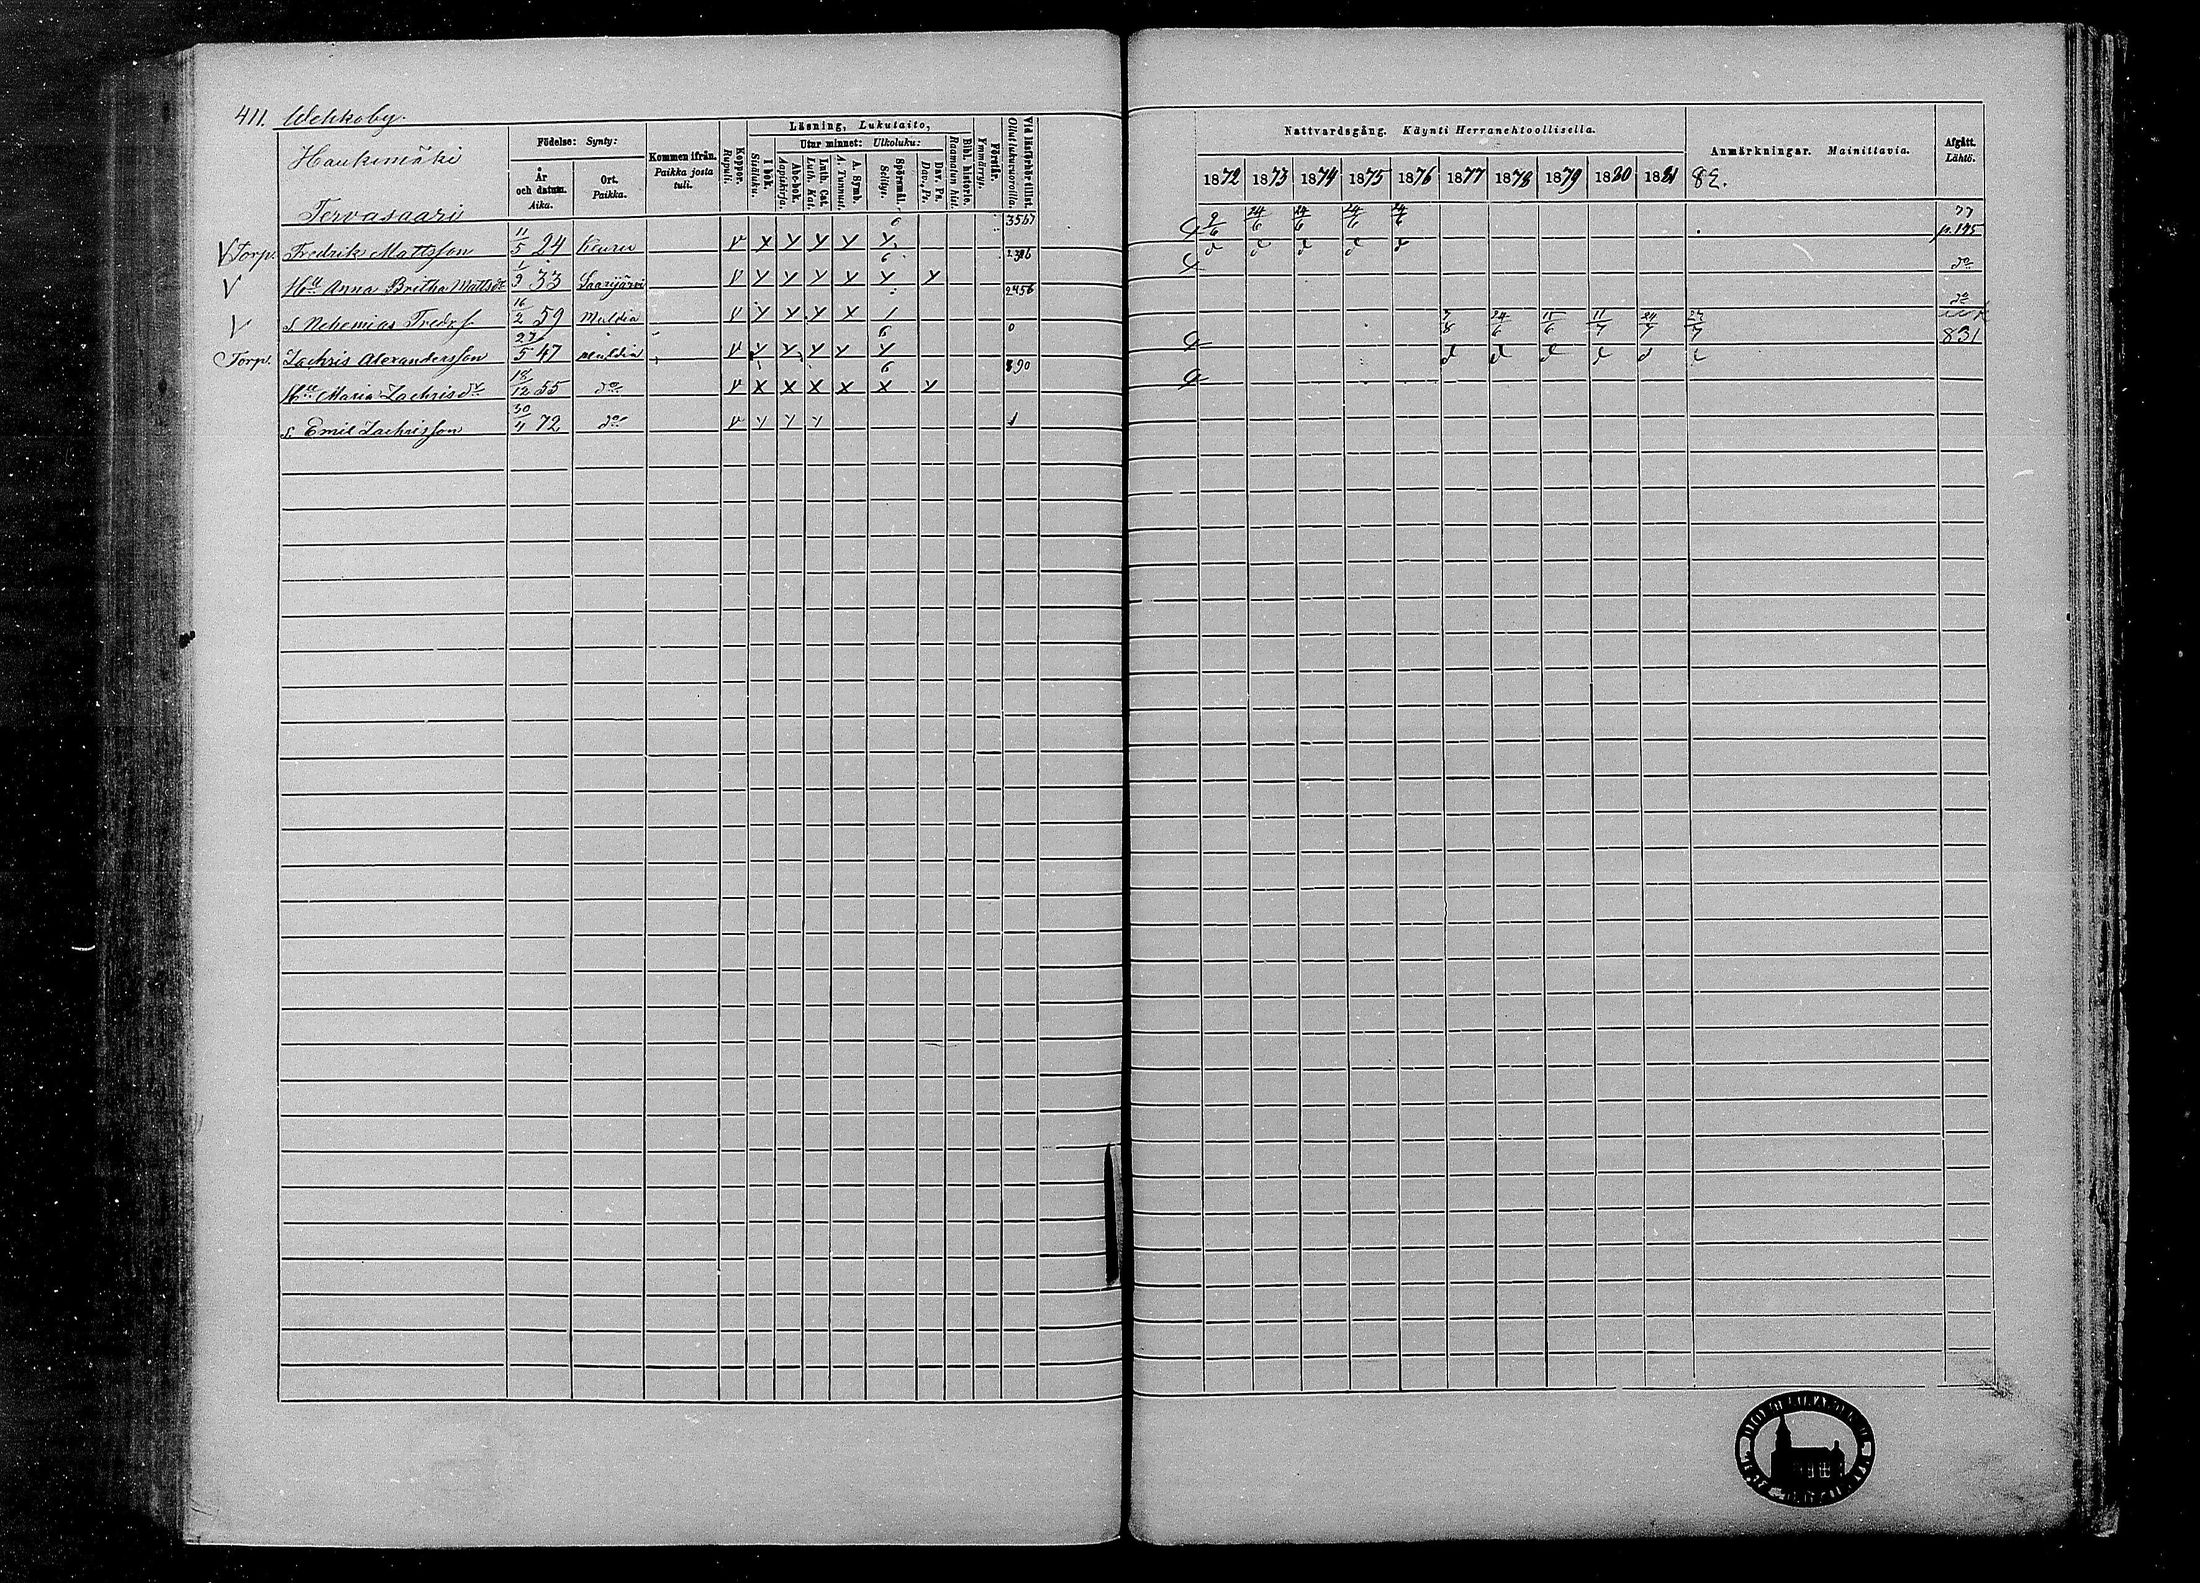 411. Wehkoby.
Haukimäki
Födelse: Synty:
År och datum. Aika.
Ort. Paikka.
Kommen ifrån. Paikka josta tuli.
Koppor. Rupuli.
Läsning, Lukutaito,
I bok. Sisäluku.
Utur minnet: Ulkoluku:
Abc-bok. Aapiskirja.
Luth. Cat. Luth. Kat.
A. Symb. A. Tunnut.
Spörsmål. Selityr.
Dav. Ps. Dav., Ps.
Bibl. historie. Raamatun hist.
Förstår. Ymmärryr.
Vid läsförhör tillst. Ollut lukuvuorolla.
Nattvardsgång. Käynti Herranehtoollisella.
1872 1873 1874 1875 1876 1877 1878 1879 1880 1881 82.
Anmärkningar. Mainittavia.
Afgått. Lähtö.
Tervasaari
V Torp. Fredrik Mattsson 11/5 24 Keuru v x y y y y 6 3567 2/6 24/6 24/6 24/6 24/6 77 p. 175
V Hu Anna Britha Mattsdr 1/9 33 Saarijärvi v y y y y y y 6 d d d d d do
V s. Nehemias Fredrs. 16/2 59 Muldia v y y y x 1 2456 do
Torp. Zachris Alexandersson 27/5 47 Muldia v y y y y y 6 0 7/8 24/6 15/6 11/7 24/7 831
Hu Maria Zachrisdr 18/12 55 do v x x x x x x 6 d d d d d
s. Emil Zachrisson 30/4 72 do v y y y 1